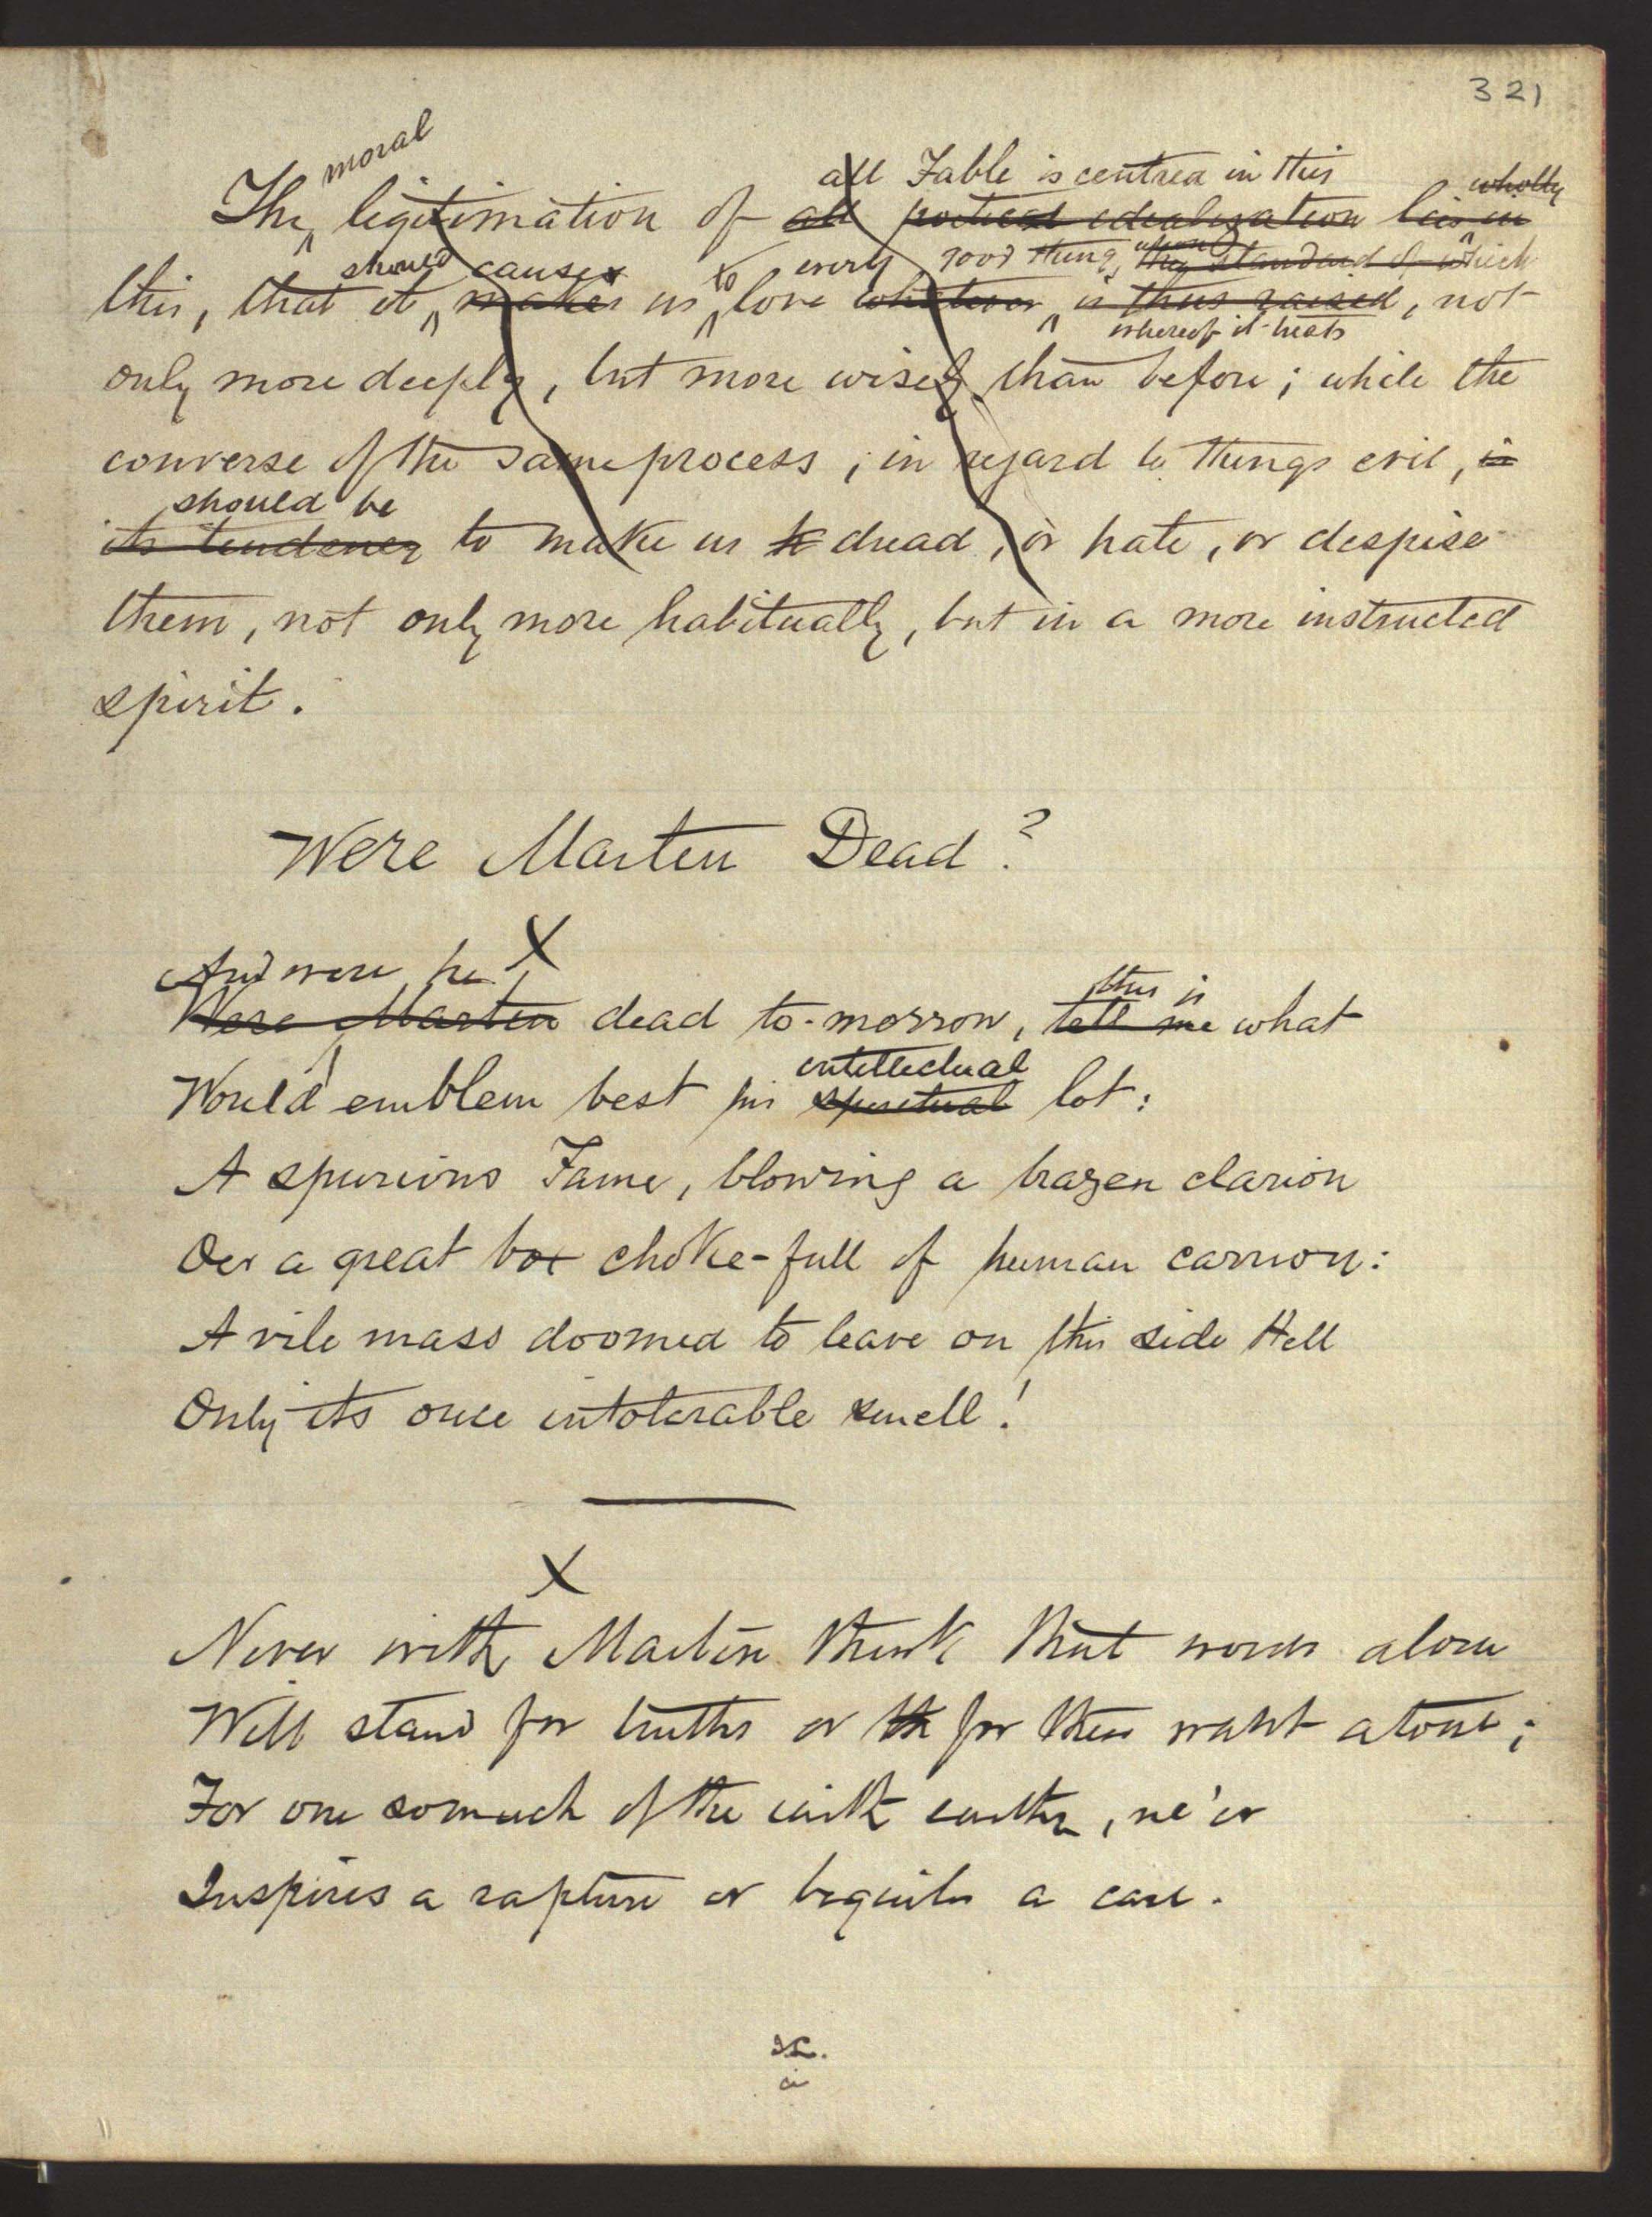 321
moral
all Fable is centred in this wholly
The legitimation of all poetical idealization lies in
should causes to every good thing, the standard of which
this, that it makes us love whatever is thus raised, not
whereof it treats
only more deeply, but more wisely than before; while the
converse of the same process, in regard to things evil, is
should be
its tendency to make us to dread, or hate, or despise
them, not only more habitually, but in a more instructed
spirit.
Were Marten Dead?
X
And were he
Were Marten dead to-morrow, tell me what
this is
Would emblem best his spiritual lot:
intellectual
A spurious Fame, blowing a brazen clarion
Oer a great box choke-full of human carrion:
A vile mass doomed to leave on this side Hell
Only its once intolerable smell!
X
Never with Marten think that words alone
Will stand for truths or th for their want atone;
For one so much of the earth earthy, ne'er
Inspires a rapture or beguiles a care.